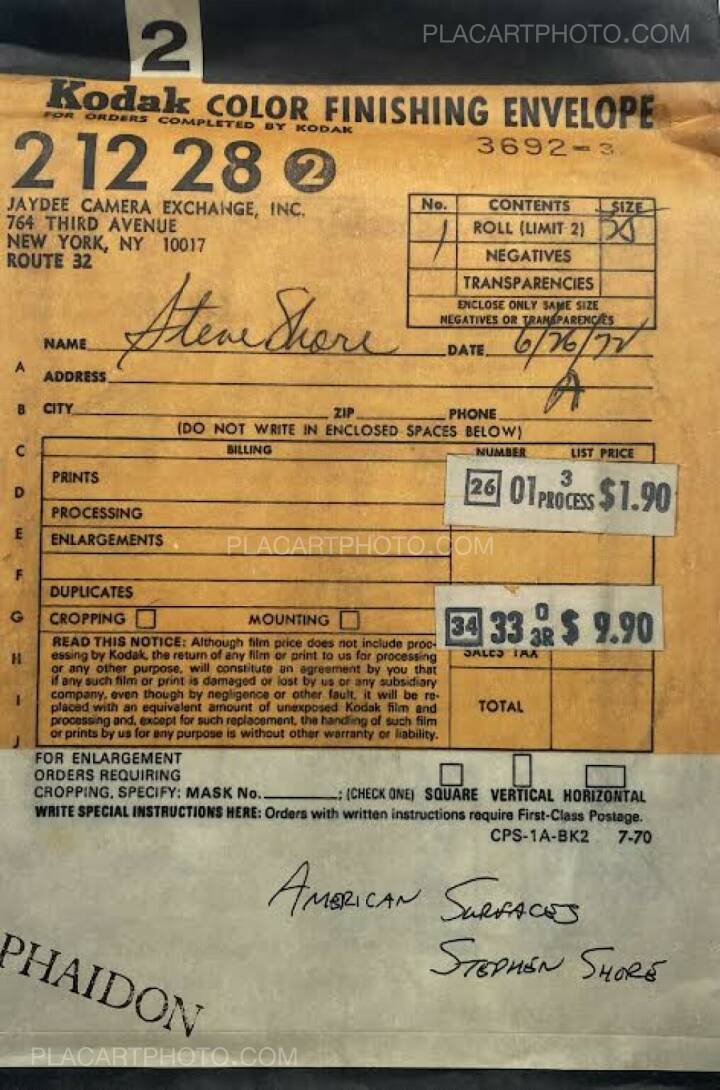 PLACARTPHOTO.COM
2
Kodak COLOR FINISHING ENVELOPE
FOR ORDERS COMPLETED BY KODAK
3692-3
2 12 28 2
JAYDEE CAMERA EXCHANGE, INC.
764 THIRD AVENUE
NEW YORK, NY 10017
ROUTE 32
No. CONTENTS SIZE
1 ROLL (LIMIT 2)
NEGATIVES
TRANSPARENCIES
ENCLOSE ONLY SAME SIZE
NEGATIVES OR TRANSPARENCIES
NAME Steve Shore DATE 6/26/72
A ADDRESS A
B CITY ZIP PHONE
(DO NOT WRITE IN ENCLOSED SPACES BELOW)
C BILLING NUMBER LIST PRICE
PRINTS 26 01 3 PROCESS $1.90
D
PROCESSING
E ENLARGEMENTS
PLACARTPHOTO.COM
F
DUPLICATES
G CROPPING MOUNTING 34 33 0 3R $ 9.90
H READ THIS NOTICE: Although film price does not include proc-
essing by Kodak, the return of any film or print to us for processing
or any other purpose, will constitute an agreement by you that
if any such film or print is damaged or lost by us or any subsidiary
company, even though by negligence or other fault, it will be re-
placed with an equivalent amount of unexposed Kodak film and
processing and, except for such replacement, the handling of such film
or prints by us for any purpose is without other warranty or liability.
SALES TAX
TOTAL
I
J
FOR ENLARGEMENT
ORDERS REQUIRING
CROPPING, SPECIFY: MASK No. : (CHECK ONE) SQUARE VERTICAL HORIZONTAL
WRITE SPECIAL INSTRUCTIONS HERE: Orders with written instructions require First-Class Postage.
CPS-1A-BK2 7-70
AMERICAN SURFACES
STEPHEN SHORE
PHAIDON
PLACARTPHOTO.COM